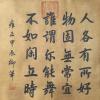 人各有所好
物固無常宜
誰謂你能舞
不如閑立時